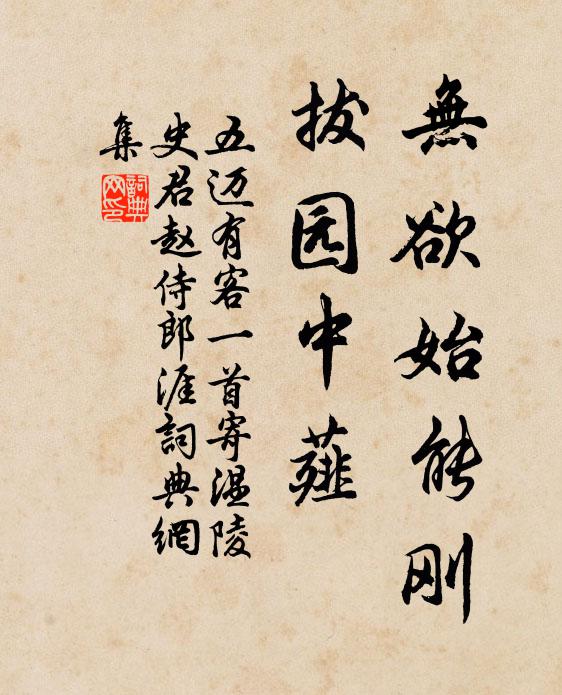 無欲始能刚
拔园中薤
五迈有客一首寄温陵
史君赵侍郎涯詞典網
集
詞典
网印